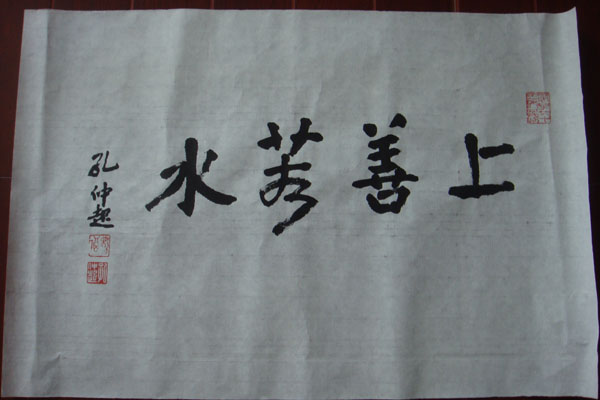 上善若水
孔仲起